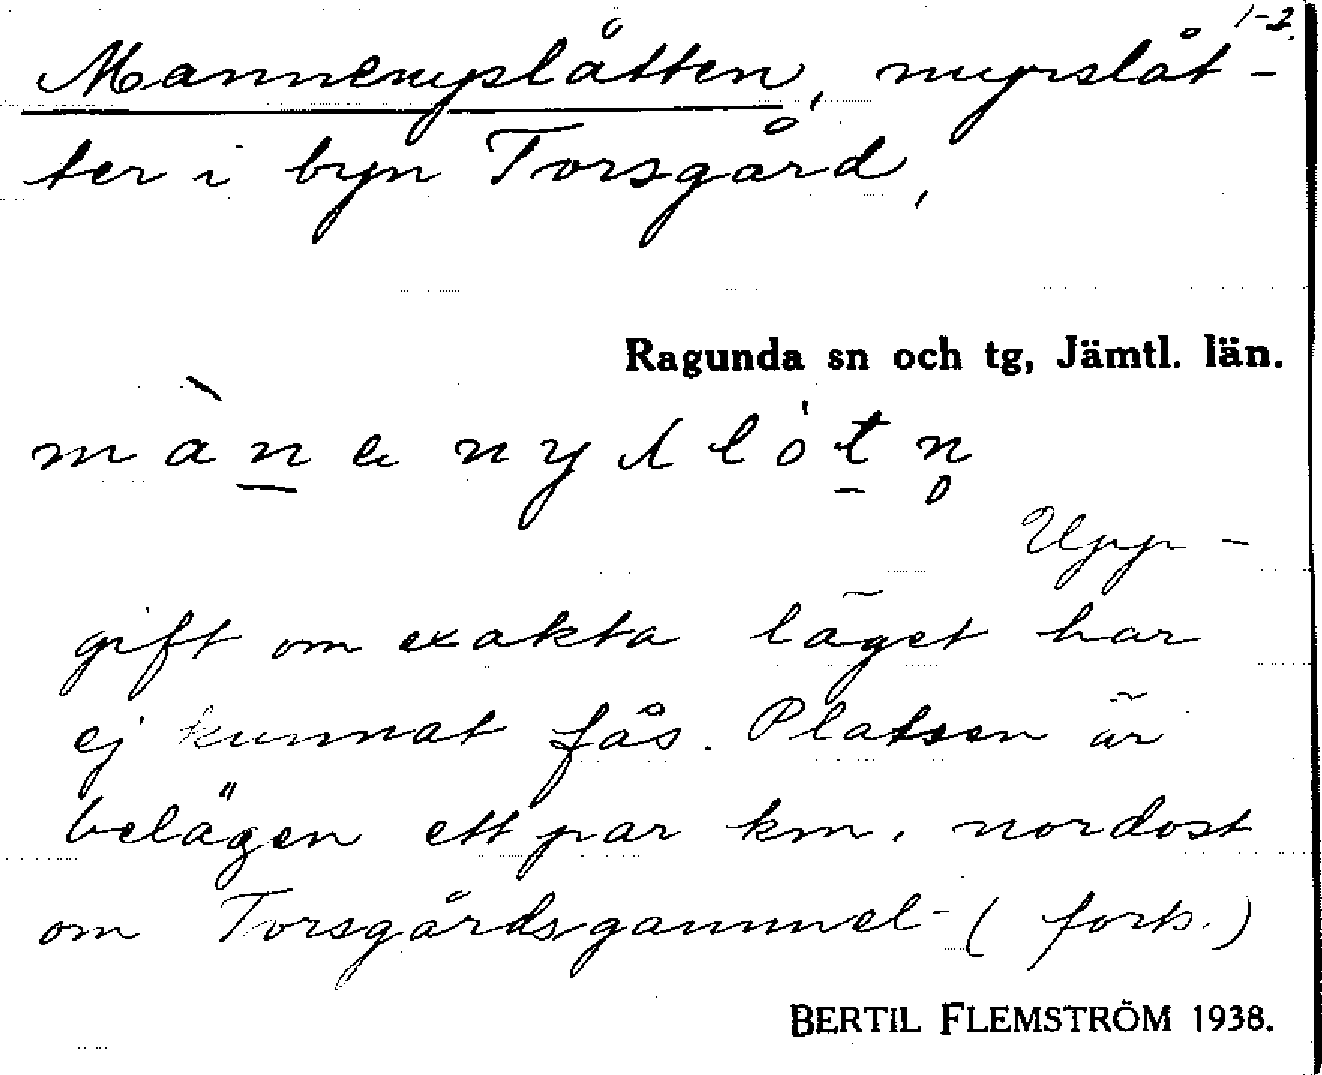 1-2.
Mannenyslåtten, myrslåt-
ter i byn Torsgård,
Ragunda sn och tg, Jämtl. län.
Upp-
gift om exakta läget har
ej kunnat fås. Platsen är
belägen ett par km. nordost
om Torsgårdsgammel- (forts.)
BERTIL FLEMSTRÖM 1938.